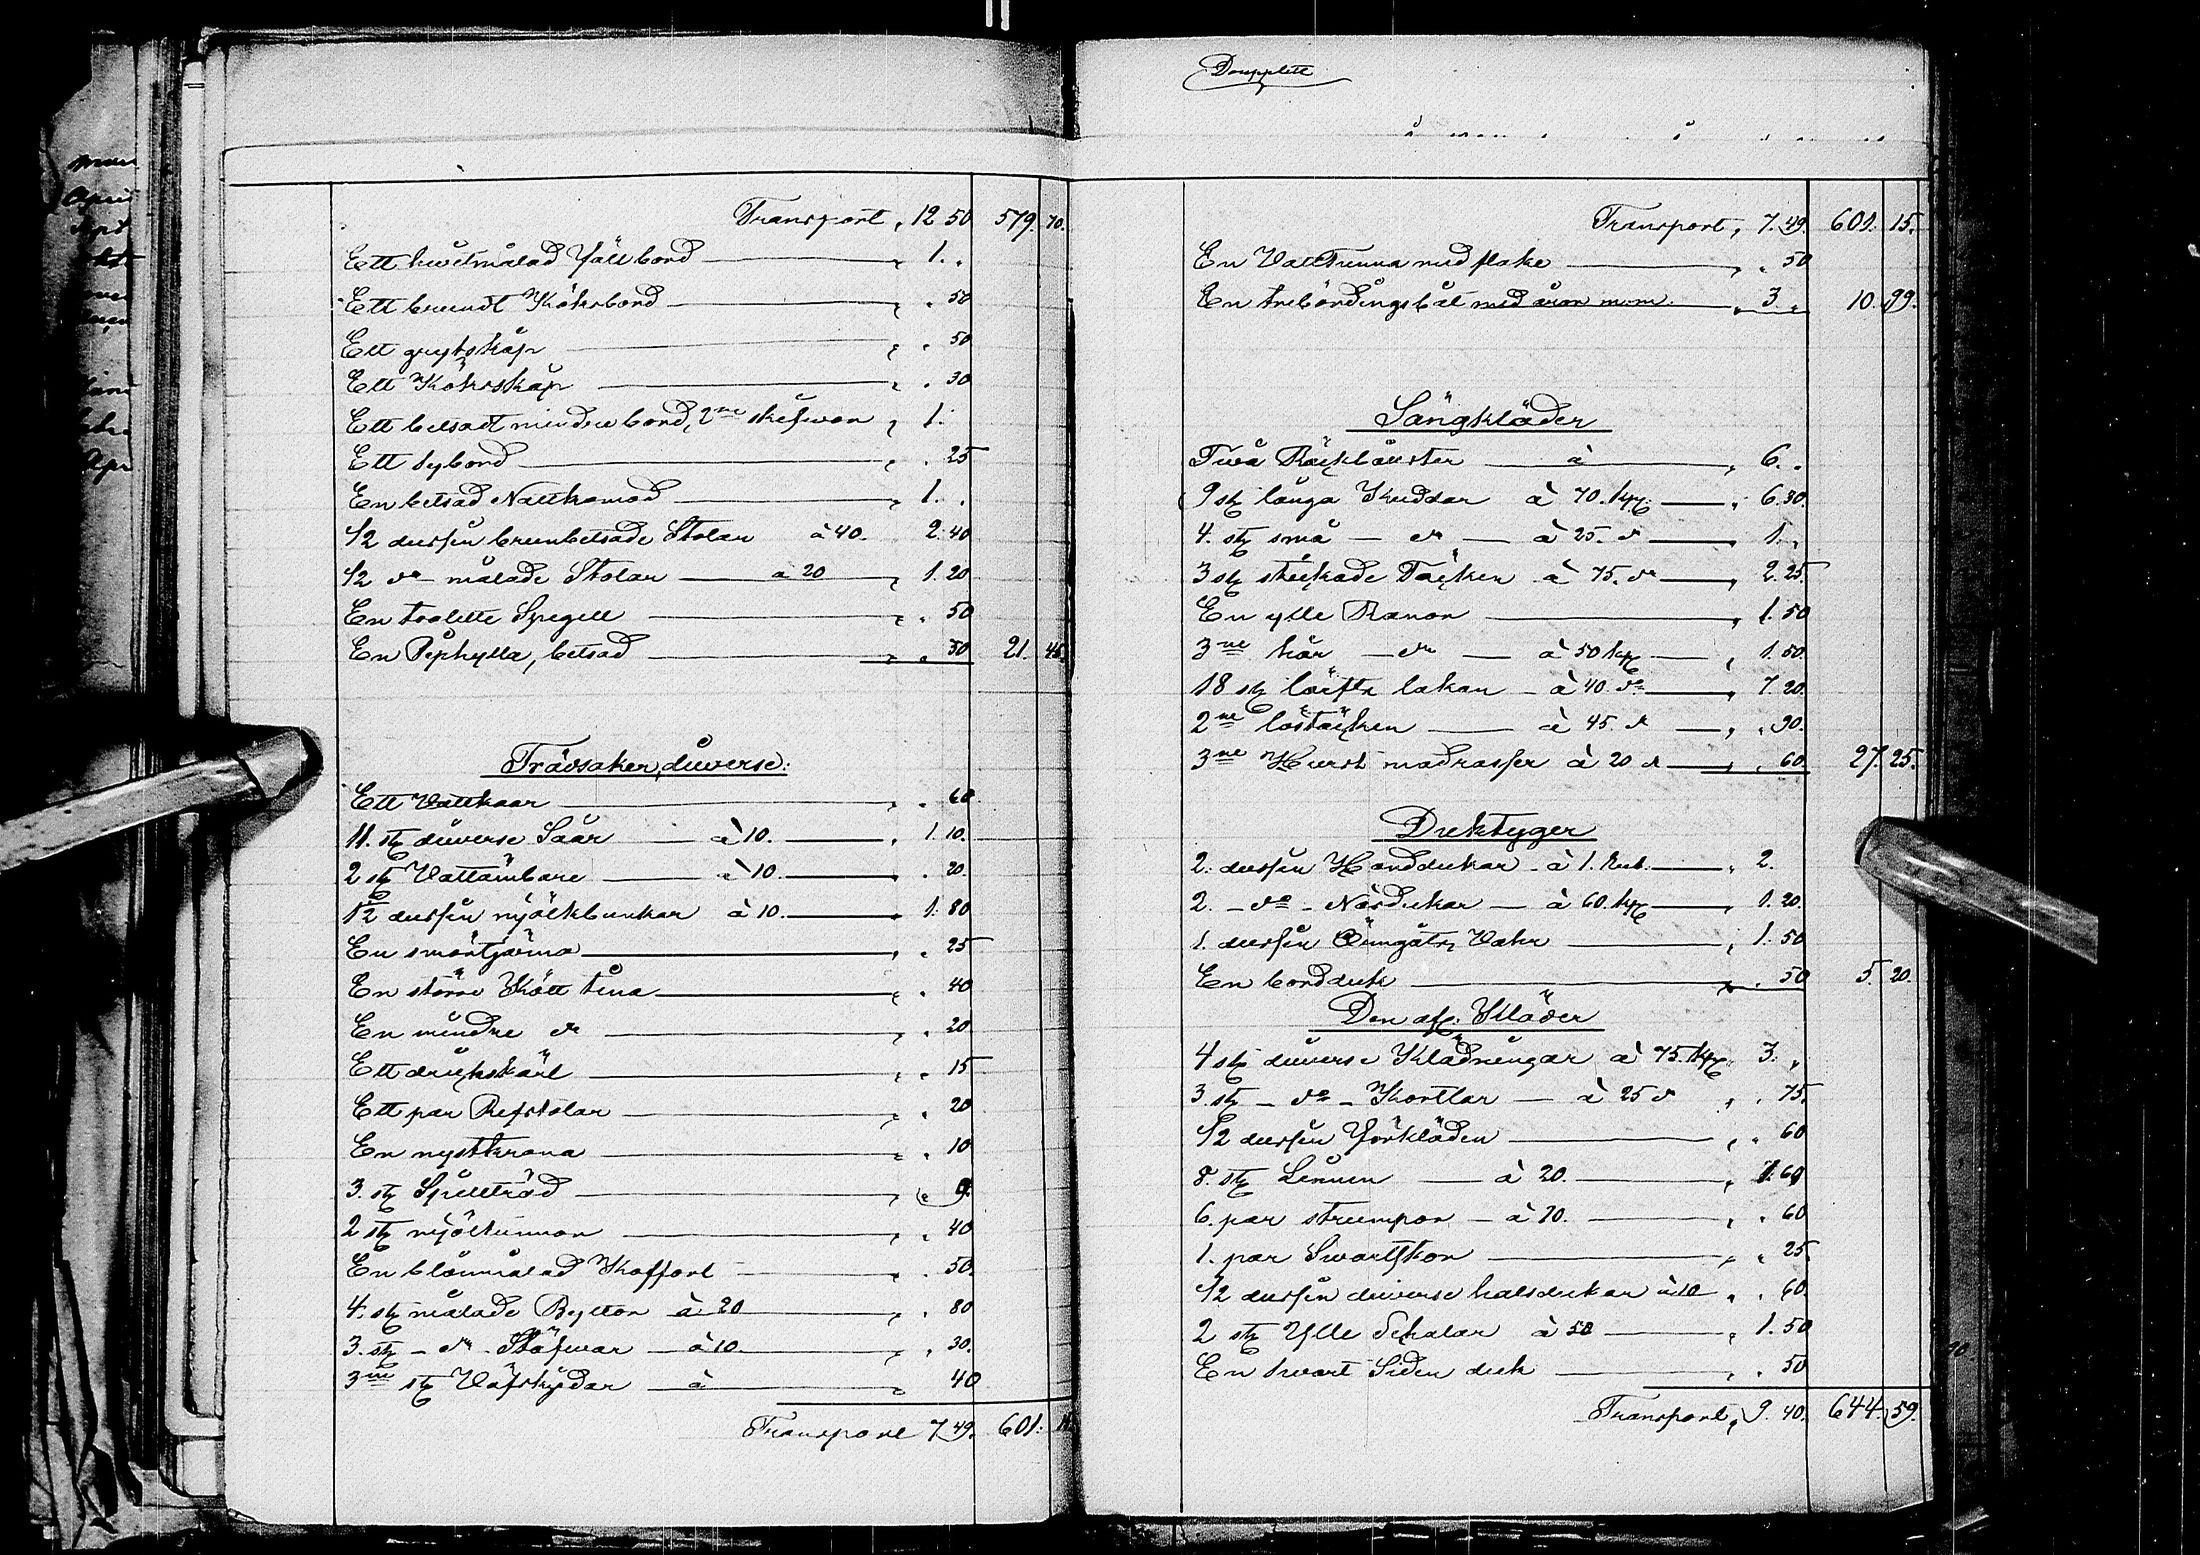 Transport, 12 50 579. 70.
Ett hwitmålad Fällbord " 1. "
Ett brundt Köksbord " " 50
Ett grytskåp " " 50
Ett Kökrskåp " " 30
Ett betsadt mindre bord, 2ne skifwor " 1.
Ett Sybord " " 25
En betsad Nattkomod " 1. "
1/2 dussin brunbetsade Stolar à 40. 2. 40
1/2 do målade Stolar à 20 " 1. 20
En toalette Spegell " " 50
En Piphylla, betsad " " 50 21. 45.
Trävsaker, diverse:
Ett Vattkaar " " 60
11. stÿ diverse Såar à 10. " 1. 10.
2 stÿ Vattämbare à 10. " 20.
1 1/2 dussin mjölkbunkar à 10. 1. 80
En smörtjärna " " 25
En större Kött tina " " 40
En mindre do " " 20
Ett drickskärl " " 15
Ett par Refstolar " " 20
En nystkrona " " 10
3. stÿ Spillträd " " 9.
2 stÿ mjöltunnor " " 40
En blåmålad Koffort " " 50.
4. stÿ målade Byttor à 20 " " 80
3. stÿ - do - Stäfwar à 10. " " 30.
3ne stÿ Väfskedar à " 40
Transport 7. 49. 601.
Doupplett
Transport, 7. 49. 601. 15.
En Vatttunna med flake " " 50
En trebördingsbåt med åror m.m. " 3. " 10. 99.
Sängkläder
Twå Räckbolster à " 6. "
9 stÿ långa Kuddar à 70. kpk " 6. 30.
4. stÿ små - do - à 25. do " 1. "
3 stÿ stickade Täcken à 75. do " 2. 25.
En ylle Ranor " 1. 50
3ne hår - do - à 50 kpk " 1. 50.
18 stÿ läifts lakan - à 40. do " 7. 20.
2ne löstäcken à 45. do " " 90.
3ne Hurst madrasser à 20 do " " 60. 27. 25.
Duktyger
2. dussin Handdukar - à 1. Rub. " 2.
2. - do - Näsdukar - à 60. kpk " 1. 20.
1. dussin Vahr " 1. 50
En bordduk " " 50 5. 20.
Den afl: Kläder
4 stÿ diverse Klädningar à 75. kpk " 3. "
3. stÿ - do - Kortlar - à 25 do " " 75.
1/2 dussin Förkläden " " 60
8. stÿ Linnen à 20. " 1. 60
6. par strumpor - à 10. " " 60
1. par Swartskor " " 25.
1/2 dussin diverse halsdukar à 10 " " 60.
2 stÿ Ylle Schalar à 50 " 1. 50
En swart Siden duk " " 50
Transport, 9. 40. 644. 59.